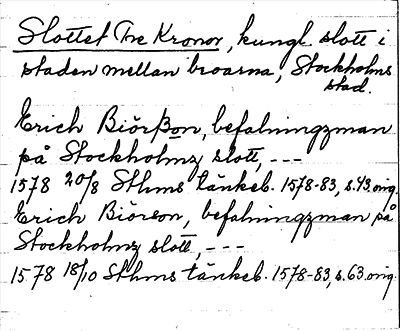 Slottet Tre Kronor, kungl. slott i
staden mellan broarna, Stockholms
stad.
Erich Biörßon, befalningzman
på Stockholmz slott, ---
1578 20/8 Sthms tänkeb. 1578-83, s.43. orig.
Erich Biörson, befalningzman på
Stockholmz slott, ---
1578 18/10 Sthms tänkeb. 1578-83, s.63. orig.